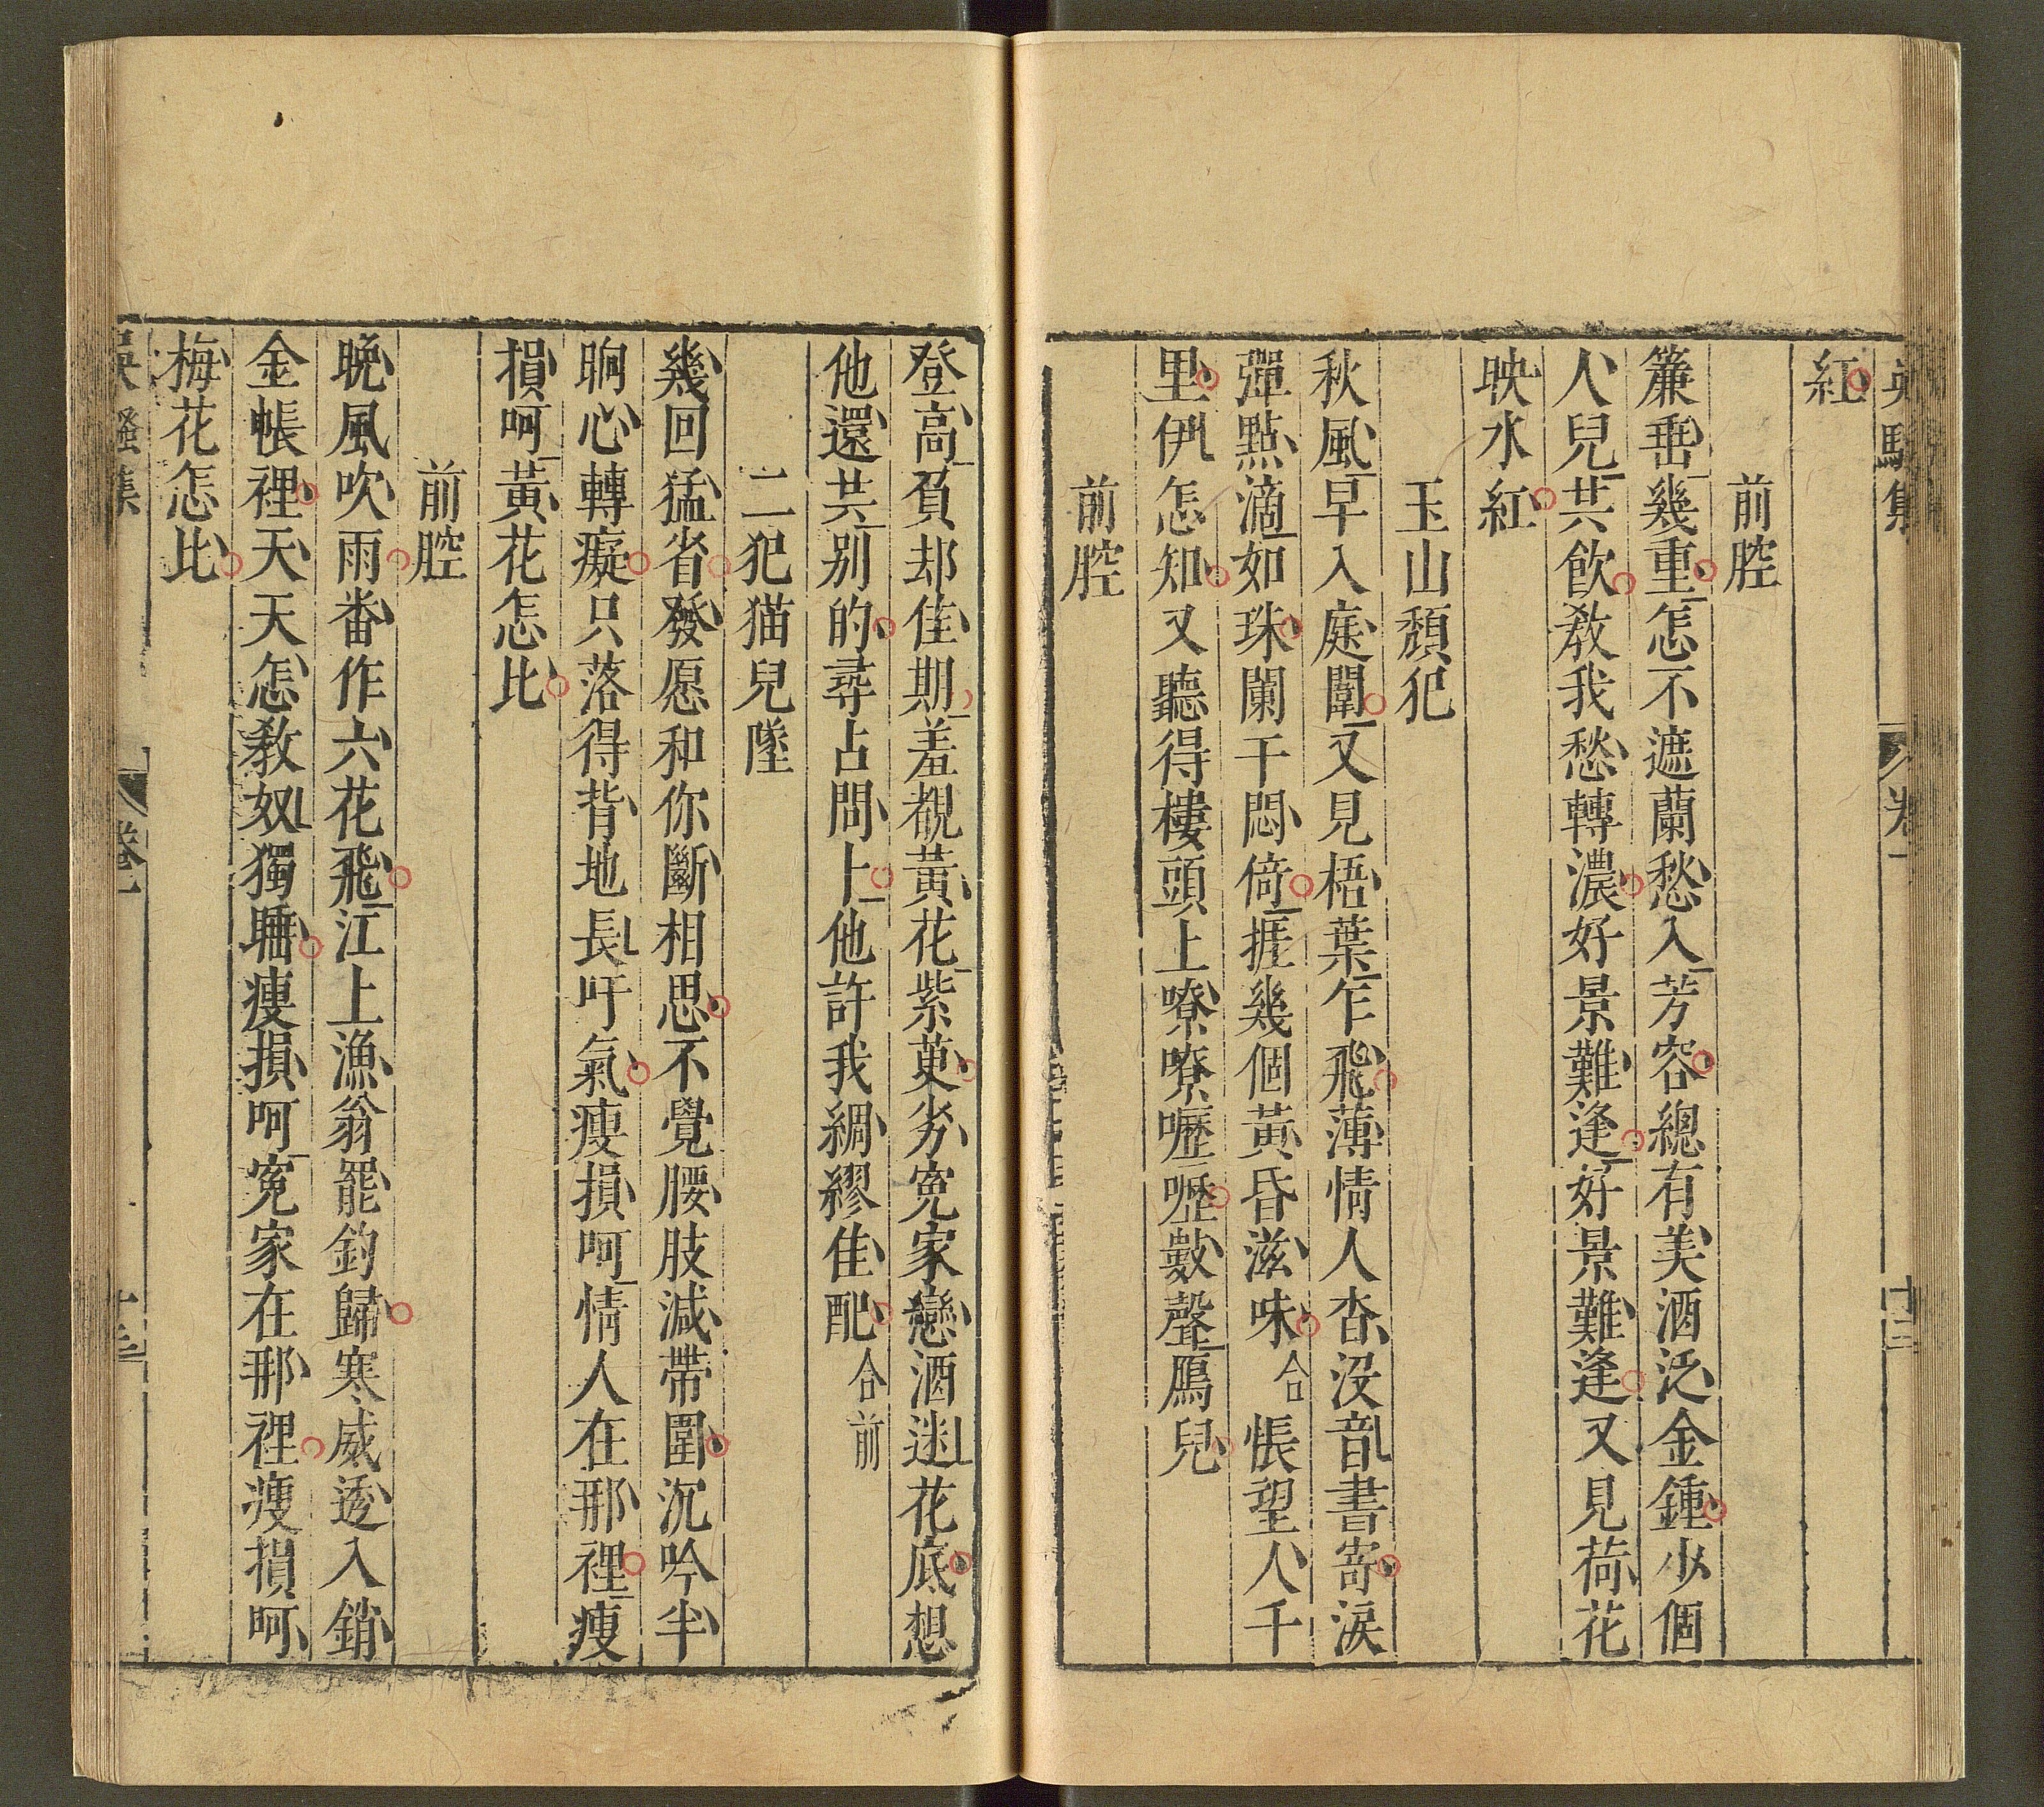 吳騷集
卷一
十二
紅
前腔
簾垂幾重怎不遮蘭愁入芳容總有美酒泛金鍾少個
人兒共飲教我愁轉濃好景難逢好景難逢又見荷花
映水紅
玉山頹犯
秋風早入庭闈又見梧葉乍飛薄情人杳沒音書寄淚
彈點滴如珠闌干悶倚捱幾個黃昏滋味合悵望人千
里伊怎知又聽得樓頭上嘹嘹嚦嚦數聲鴈兒
前腔
登高負却佳期羞覩黃花紫萸劣寃家戀酒迷花底想
他還共别的尋占問上他許我綢繆佳配合前
二犯猫兒墜
幾回猛省發愿和你斷相思不覺腰肢減帶圍沉吟半
晌心轉癡只落得背地長吁氣瘦損呵情人在那裡瘦
損呵黃花怎比
前腔
晚風吹雨畨作六花飛江上漁翁罷釣歸寒威透入銷
金帳裡天天怎教奴獨睡瘦損呵寃家在那裡瘦損呵
梅花怎比
吳騷集
卷一